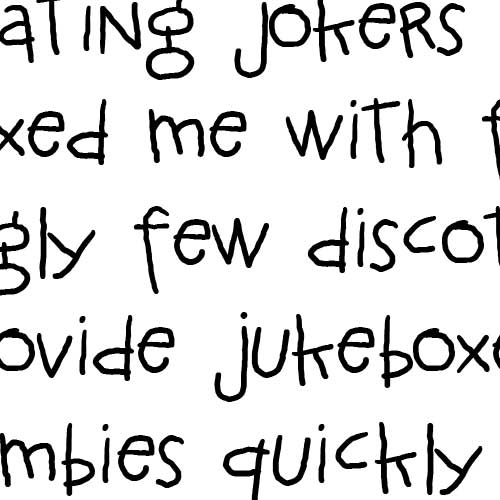 ating jokers
xed me with f
gly few discot
ovide jukeboxe
mbies quickly